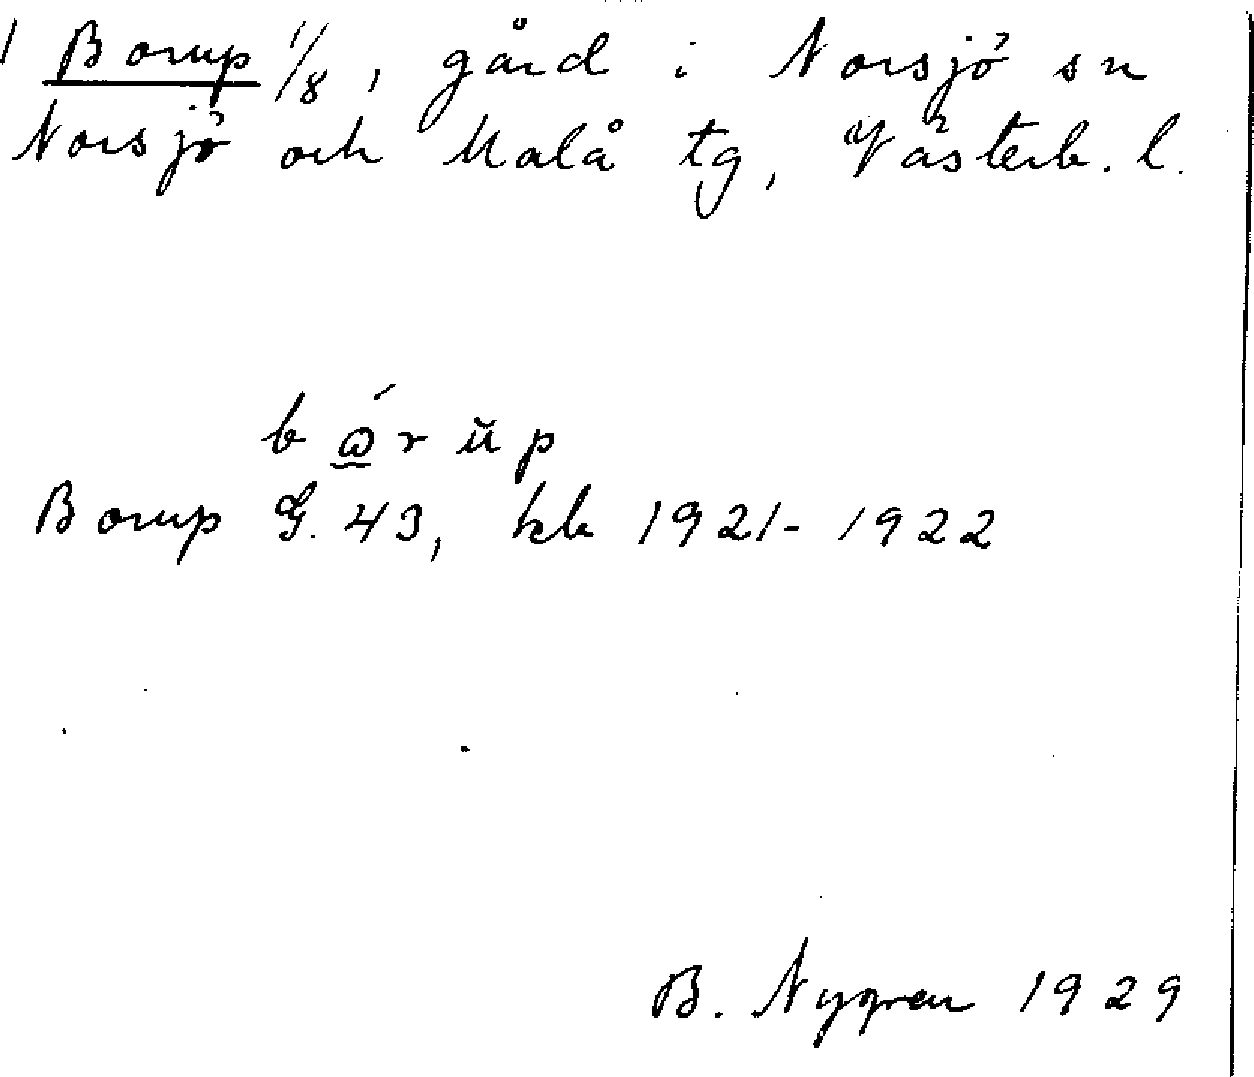 1 Borup 1/8, gård i Norsjö sn
Norsjö och Malå tg, Västerb. l.
bώ̲rŭp
Borup G. 43, kb 1921-1922
B. Nygren 1929